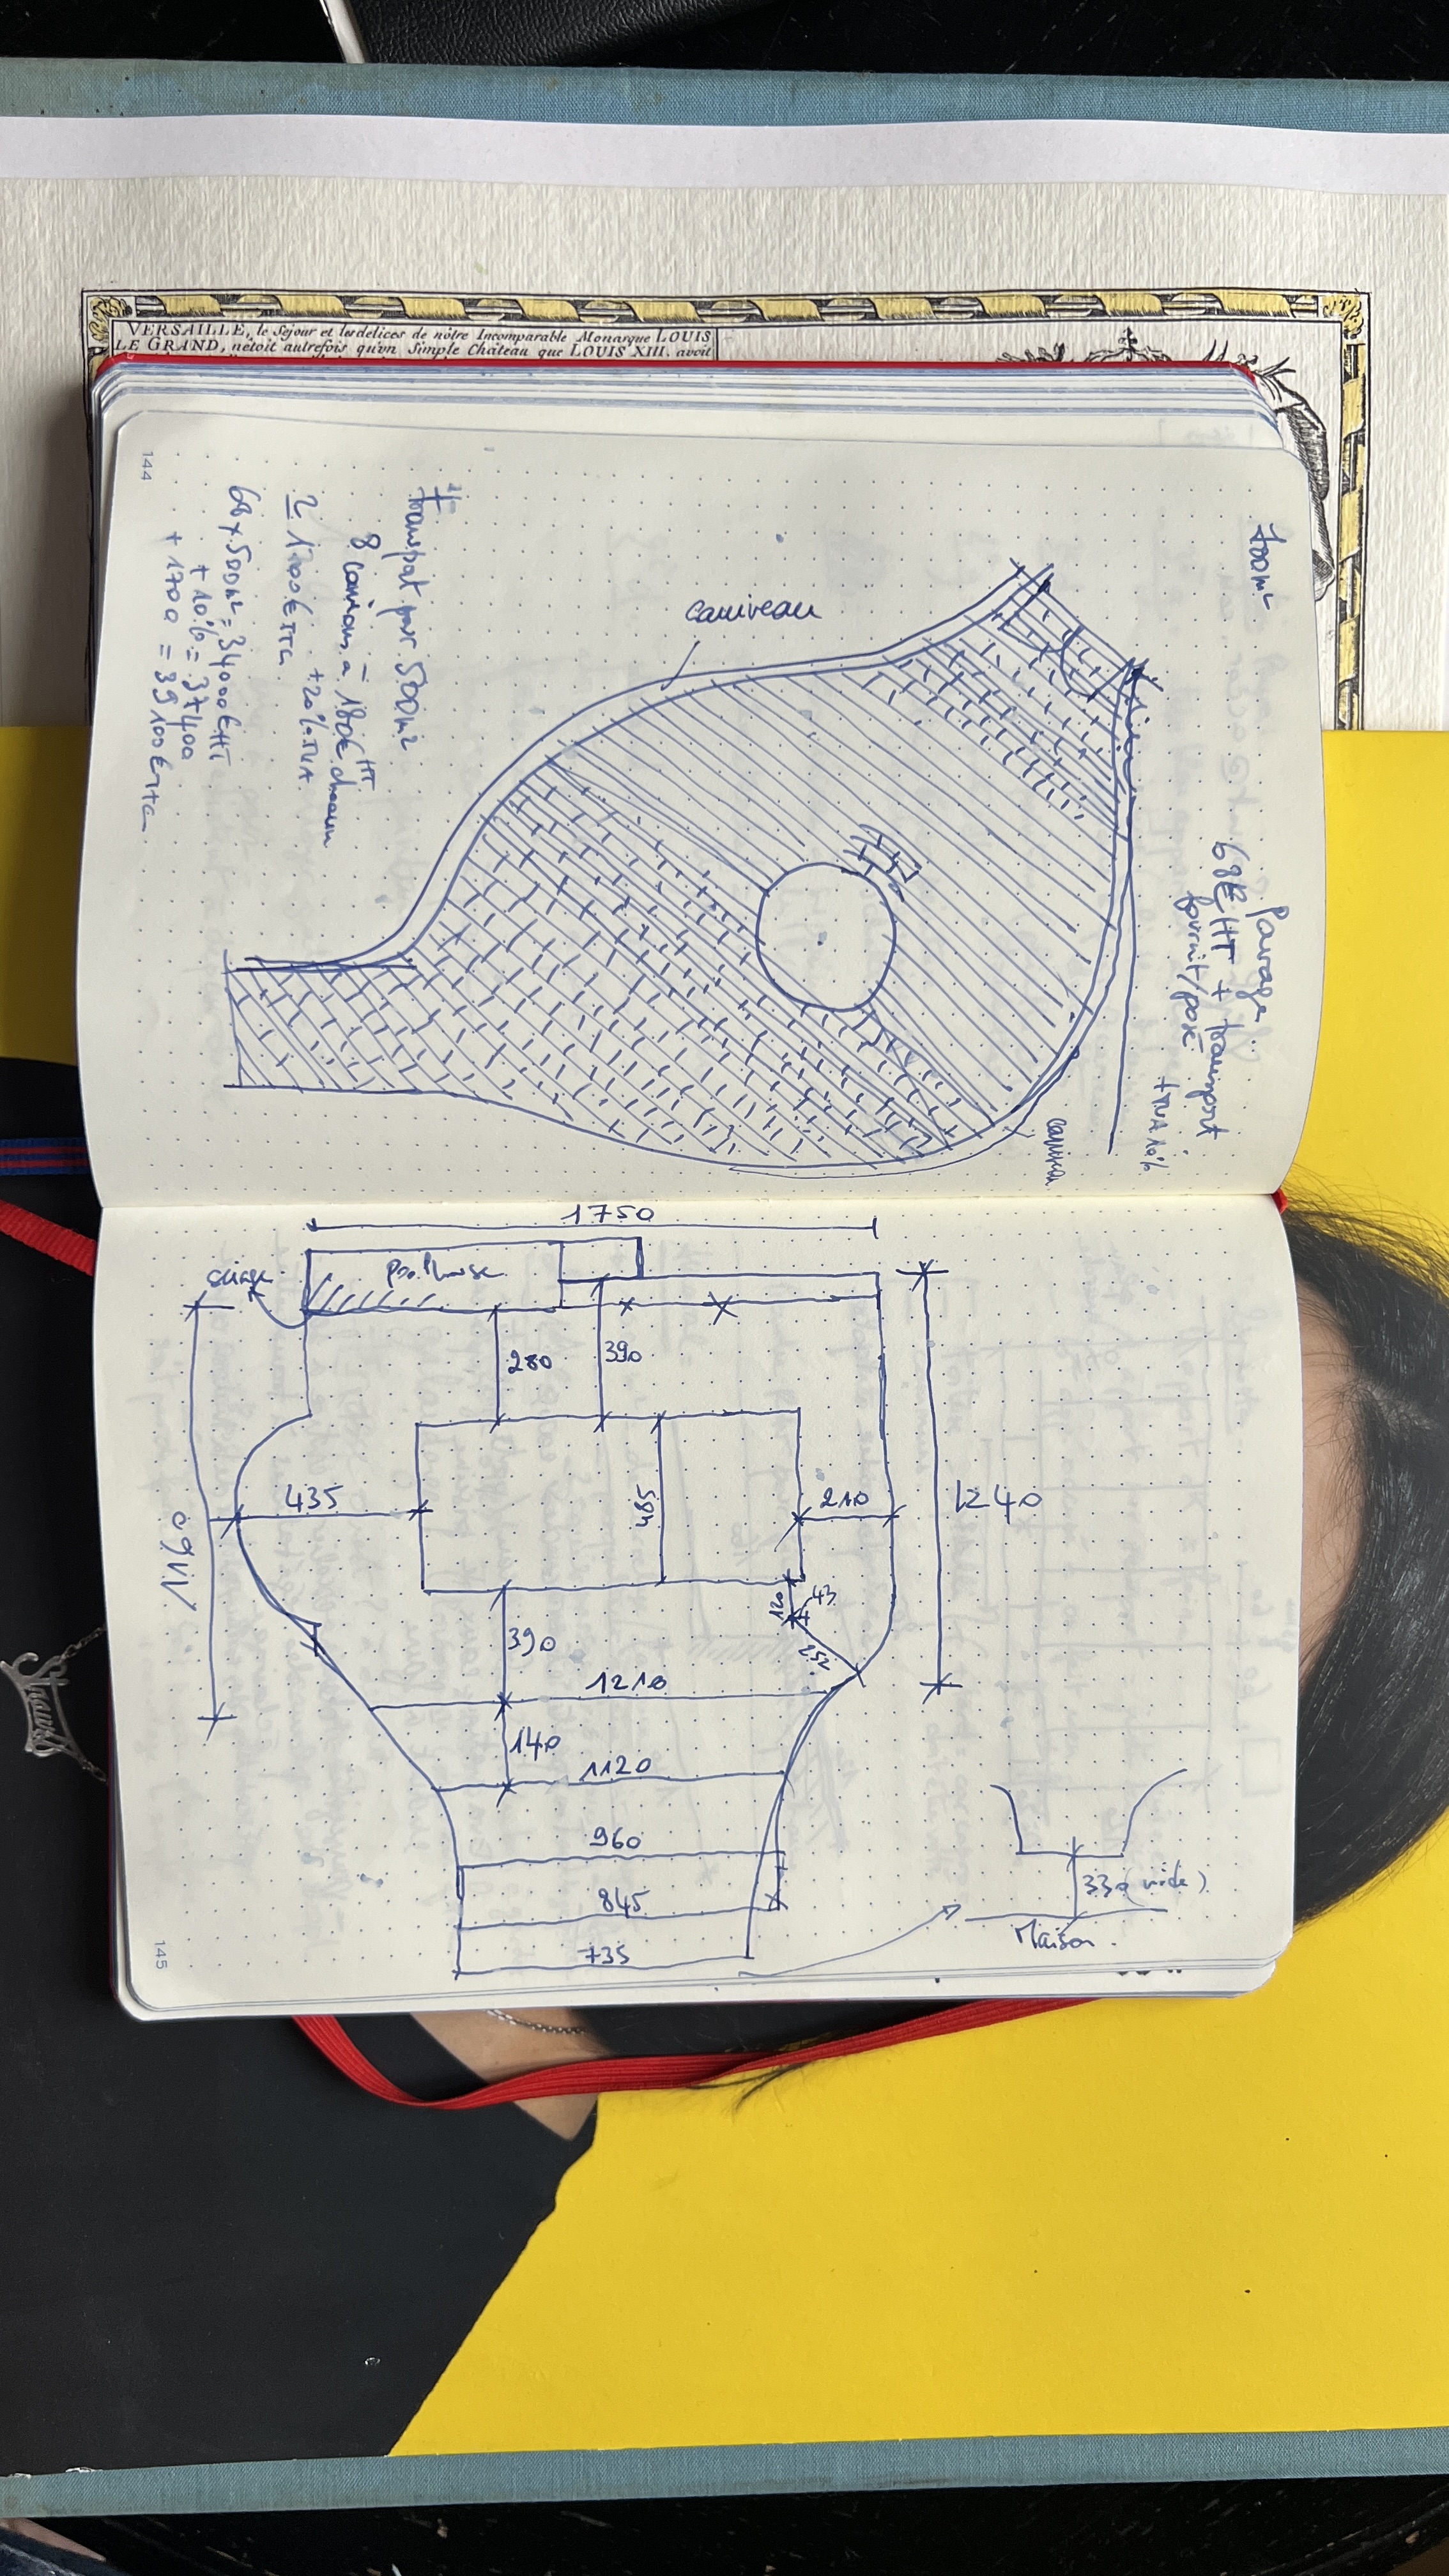 VERSAILLE, le Sejour et les delices de nôtre Incomparable Monarque LOUIS
LE GRAND, n'etoit autrefois qu'vn Simple Château que LOUIS XIII. avoit
144
700m²
Pavage
68€ HT + transport
fournit/posé
+TVA 10%
caniveau
Transport pour 500m²
8 camions = 180€ HT chacun
+20% TVA
TTC
68 x 500m² = 34000€ HT
+ 10% = 37400
+ 1700 = 39100€ TTC
1750
Poolhouse
280
390
435
485
210
1240
1160
120
43
252
390
1210
140
1120
960
845
735
330 (vide)
Maison
145